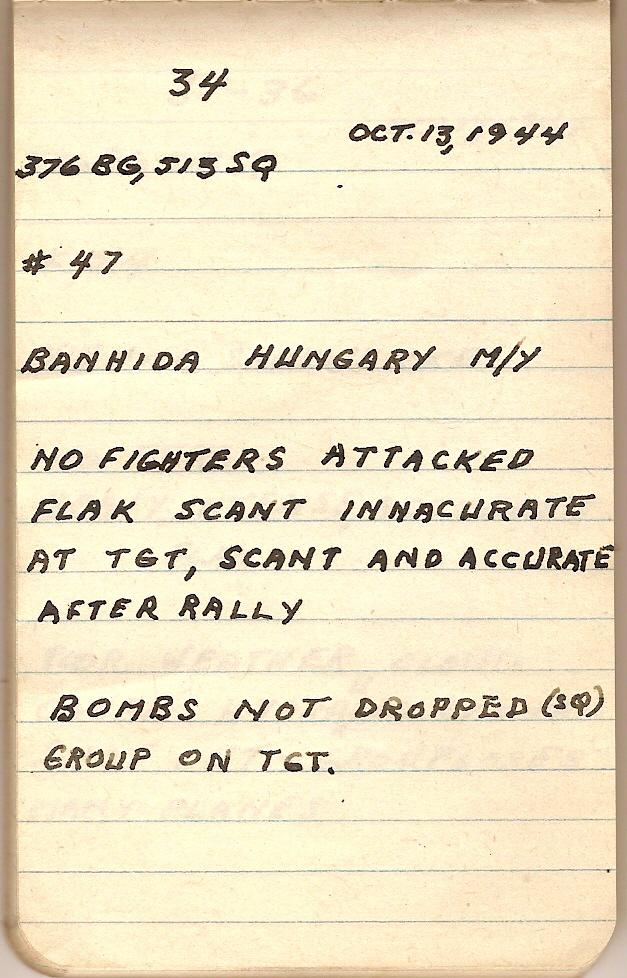 34
OCT. 13, 1944
376 BG, 513 SQ
# 47
BANHIDA HUNGARY M/Y
NO FIGHTERS ATTACKED
FLAK SCANT INNACURATE
AT TGT, SCANT AND ACCURATE
AFTER RALLY
BOMBS NOT DROPPED (SQ)
GROUP ON TGT.